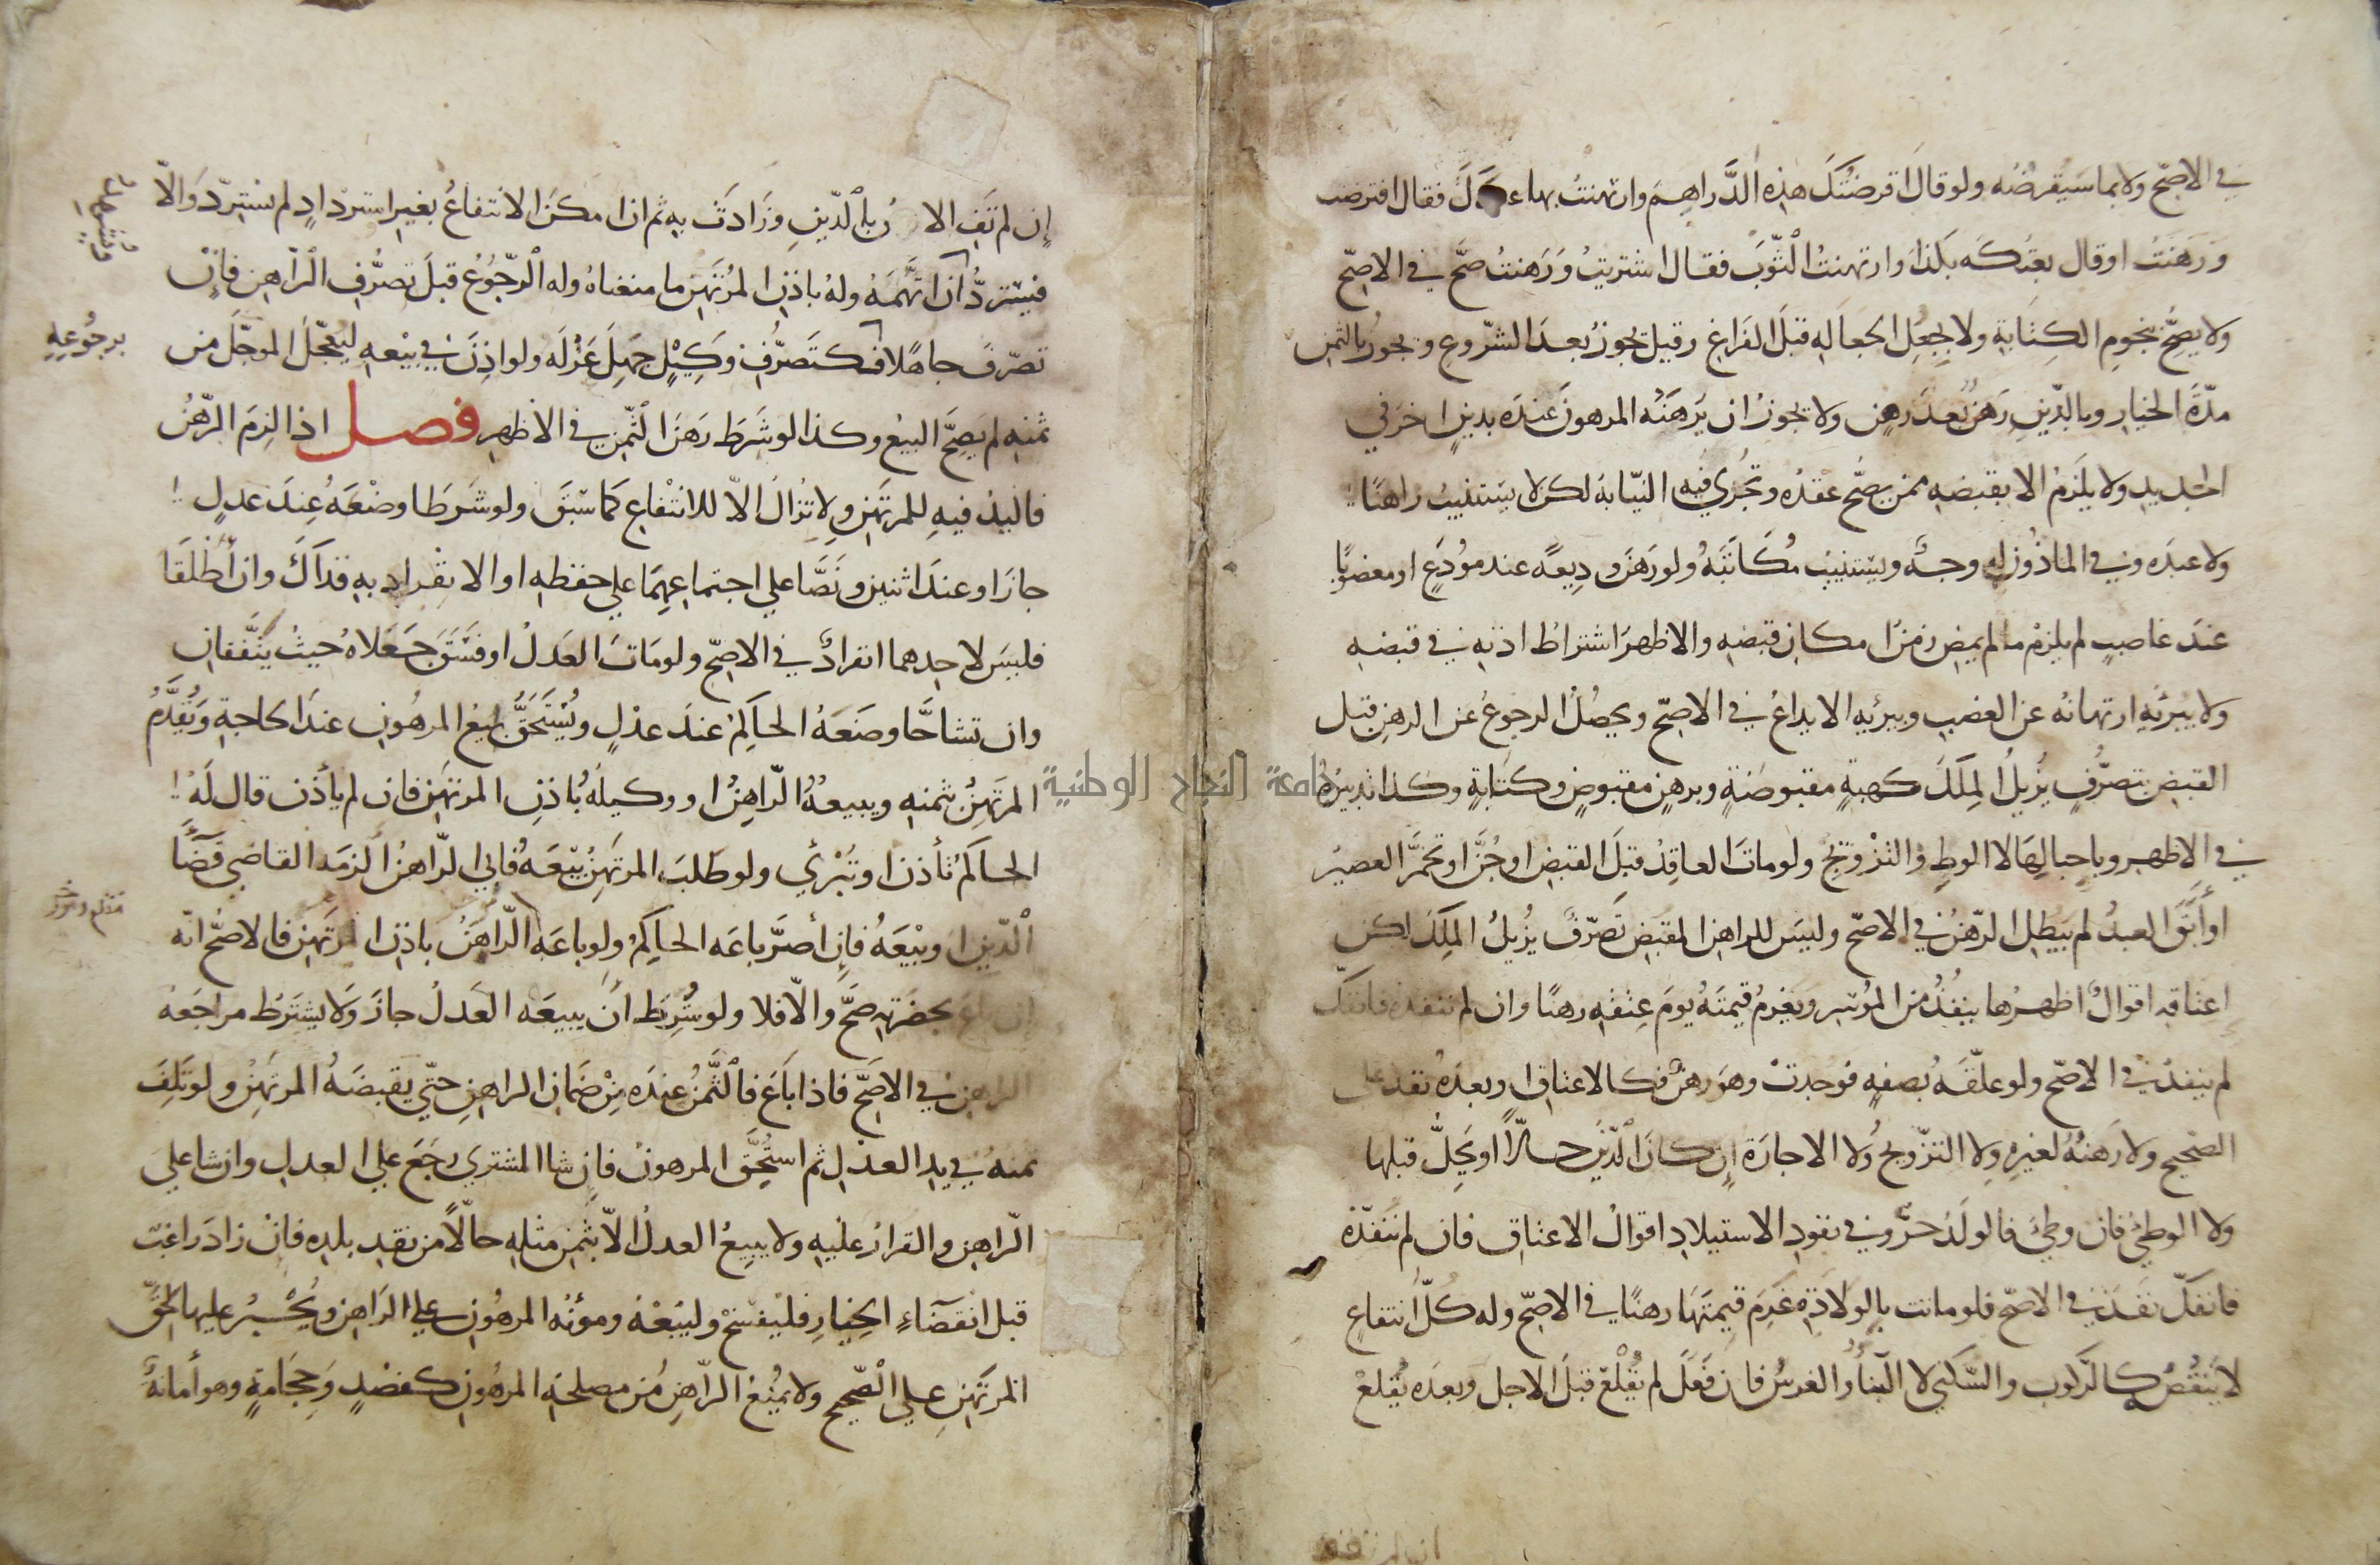 في الاصح ولا بما سيقرضه ولو قال اقرضتك هذه الدراهم وارتهنت بها عبدك فقال اقترضت
ورهنت او قال بعتكه بكذا وارتهنت الثوب فقال اشتريت ورهنت صح في الاصح
ولا يصح بنجوم الكتابة ولا بجعل الجعاله قبل الفراغ وقيل يجوز بعد الشروع ويجوز بالثمن
مدة الخيار وبالدين رهن بعد رهن ولا يجوز ان يرهنه المرهون عنده بدين اخر في
الجديد ولا يلزم الا بقبضه ممن يصح عقده وتجري فيه النيابة لكن لا يستنيب راهنا
ولا عبده وفي الماذون له وجه ويستنيب مكاتبه ولو رهن وديعة عند مودع او مغصوبا
عند غاصب لم يلزم ما لم يمض زمن امكان قبضه والاظهر اشتراط اذنه في قبضه
ولا يبرئه ارتهانه عن الغصب ويبرئه الايداع في الاصح ويحصل الرجوع عن الرهن قبل
القبض بتصرف يزيل الملك كهبة مقبوضة وبرهن مقبوض وكتابة وكذا تدبيره
في الاظهر وباحبالها لا الوطء والتزويج ولو مات العاقد قبل القبض او جن او تخمر العصير
او أبق العبد لم يبطل الرهن في الاصح وليس للراهن المقبض تصرف يزيل الملك لكن
اعتاقه اقوال اظهرها ينفذ من الموسر ويغرم قيمته يوم عتقه رهنا وان لم ننفذه فانفك
لم ينفذ في الاصح ولو علقه بصفه فوجدت وهو رهن فكالاعتاق او بعده نفذ على
الصحيح ولا رهنه لغيره ولا التزويج ولا الاجارة ان كان الدين حالا او يحل قبلها
ولا الوطئ فان وطئ فالولد حر وفي نفوذ الاستيلاد اقوال الاعتاق فان لم ننفذه
فانفك نفذ في الاصح فلو ماتت بالولادة غرم قيمتها رهنا في الاصح وله كل انتفاع
لا ينقصه كالركوب والسكنى لا البناء والغرس فان فعل لم يقلع قبل الاجل وبعده يقلع
ان لم تف الارض بالدين وزادت به ثم ان امكن الانتفاع بغير استرداد لم يسترد والا
فيسترد
ويشهد ان اتهمه وله باذن المرتهن ما منعناه وله الرجوع قبل تصرف الراهن فان
تصرف جاهلا فكتصرف وكيل جهل عزله ولو اذن في بيعه ليعجل المؤجل من
برجوعه
ثمنه لم يصح البيع وكذا لو شرط رهن الثمن في الاظهر فصل اذا لزم الرهن
فاليد فيه للمرتهن ولا تزال الا للانتفاع كما سبق ولو شرطا وضعه عند عدل
جاز او عند اثنين ونصا على اجتماعهما على حفظه او الانفراد به فذاك وان أطلقا
فليس لاحدهما انفراد في الاصح ولو مات العدل او فسق جعلاه حيث يتفقان
وان تشاحا وضعه الحاكم عند عدل ويستحق بيع المرهون عند الحاجة ويقدم
المرتهن بثمنه ويبيعه الراهن او وكيله باذن المرتهن فان لم يأذن قال له
الحاكم تأذن او تبرئ ولو طلب المرتهن بيعه فابى الراهن الزمه القاضي قضاء
الدين او بيعه فان أصر باعه الحاكم ولو باعه المرتهن باذن الراهن فالاصح انه
ان باع بحضرته صح والا فلا ولو شرط ان يبيعه العدل جاز ولا يشترط مراجعة
الراهن في الاصح فاذا باع فالثمن عنده من ضمان الراهن حتى يقبضه المرتهن ولو تلف
ثمنه في يد العدل ثم استحق المرهون فان شا المشتري رجع على العدل وان شا على
الراهن والقرار عليه ولا يبيع العدل الا بثمن مثله حالا من نقد بلده فان زاد راغب
قبل انقضاء الخيار فليفسخ وليبعه ومؤنه المرهون على الراهن ويجبر عليها لحق
المرتهن على الصحيح ولا يمنع الراهن من مصلحة المرهون كفصد وحجامة وهو أمانة
جامعة النجاح الوطنية